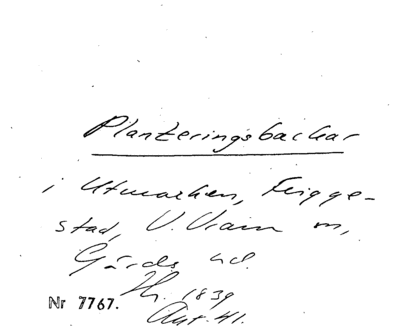 Planteringsbackar
i Utmarken, Trigge-
stad, V. Vram sn,
Gärds hd.
Nr 7767.
1839